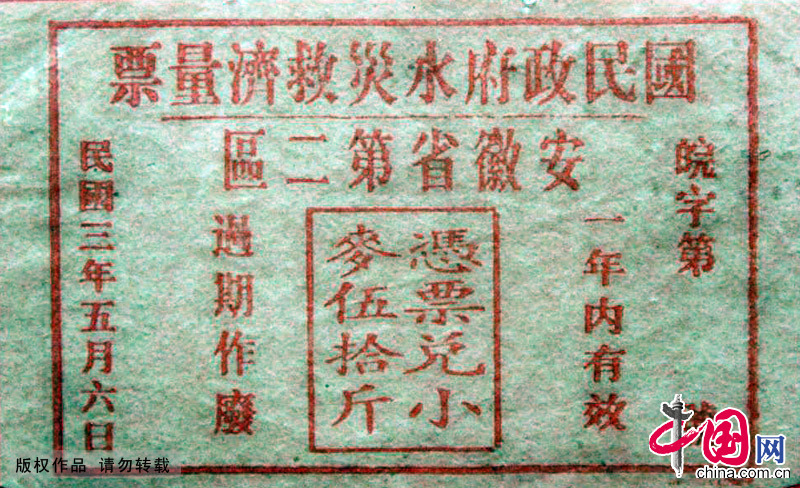 國民政府水災救濟量票
安徽省第二區
皖字第 號
一年內有效
憑票兑小
麥伍拾斤
過期作廢
民國三年五月六日
版权作品 请勿转载
中国网
china.com.cn